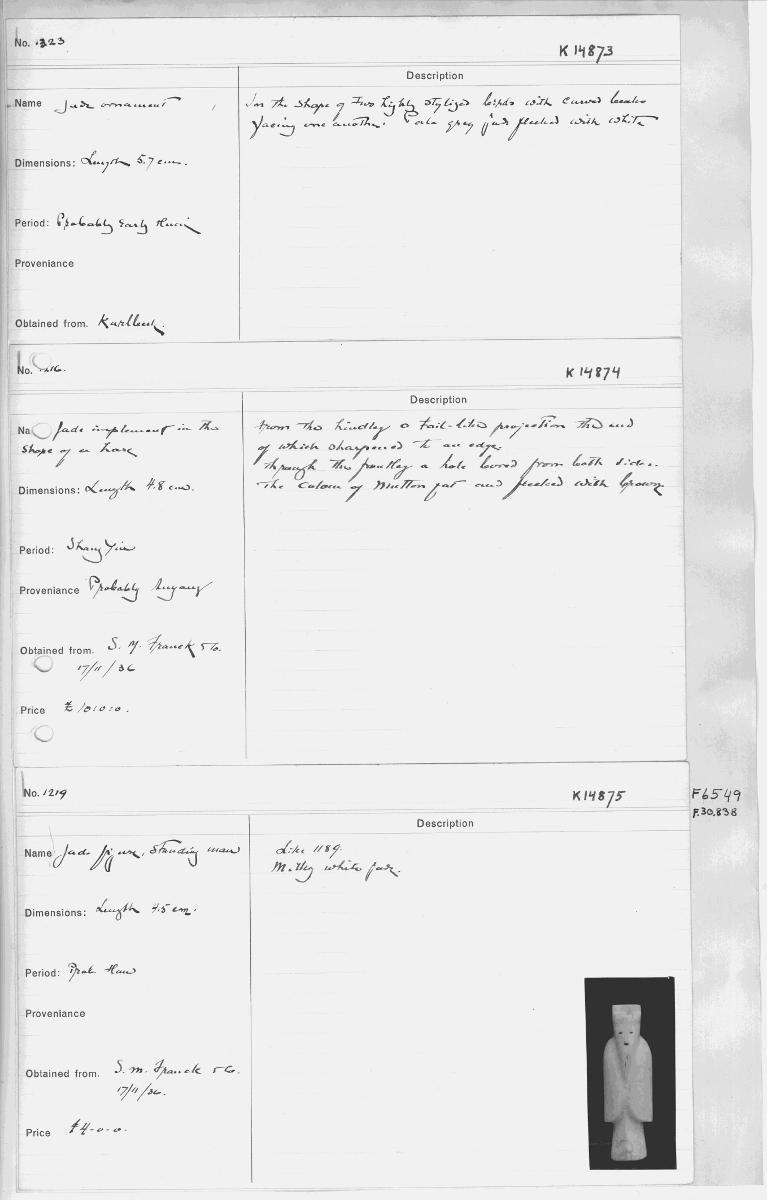 No. 1323
K 14873
Description
Name Jade ornament
In the shape of two highly stylized birds with curved beaks
facing one another. Pale grey jade flecked with white
Dimensions: Length 5.7 cm.
Period: Probably Early Huai
Proveniance
Obtained from. Karlbeck.
No. 1216.
K 14874
Description
Jade implement in the
shape of a hare
from the hindleg a tail-like projection the end
of which sharpened to an edge.
through the frontleg a hole bored from both sides.
The colour of Mutton fat and flecked with brown
Dimensions: Length 4.8 cm.
Period: Shang Yin
Proveniance Probably Anyang
Obtained from. S. M. Franck & Co.
17/11/36
Price £10:0:0.
No. 1219
K14875
F6549
F.30,838
Description
Name Jade figure, standing man
Like 1189.
Milky white jade.
Dimensions: Length 4.5 cm.
Period: Prob. Han
Proveniance
Obtained from. S. M. Franck & Co.
17/11/36.
Price £4-0-0.